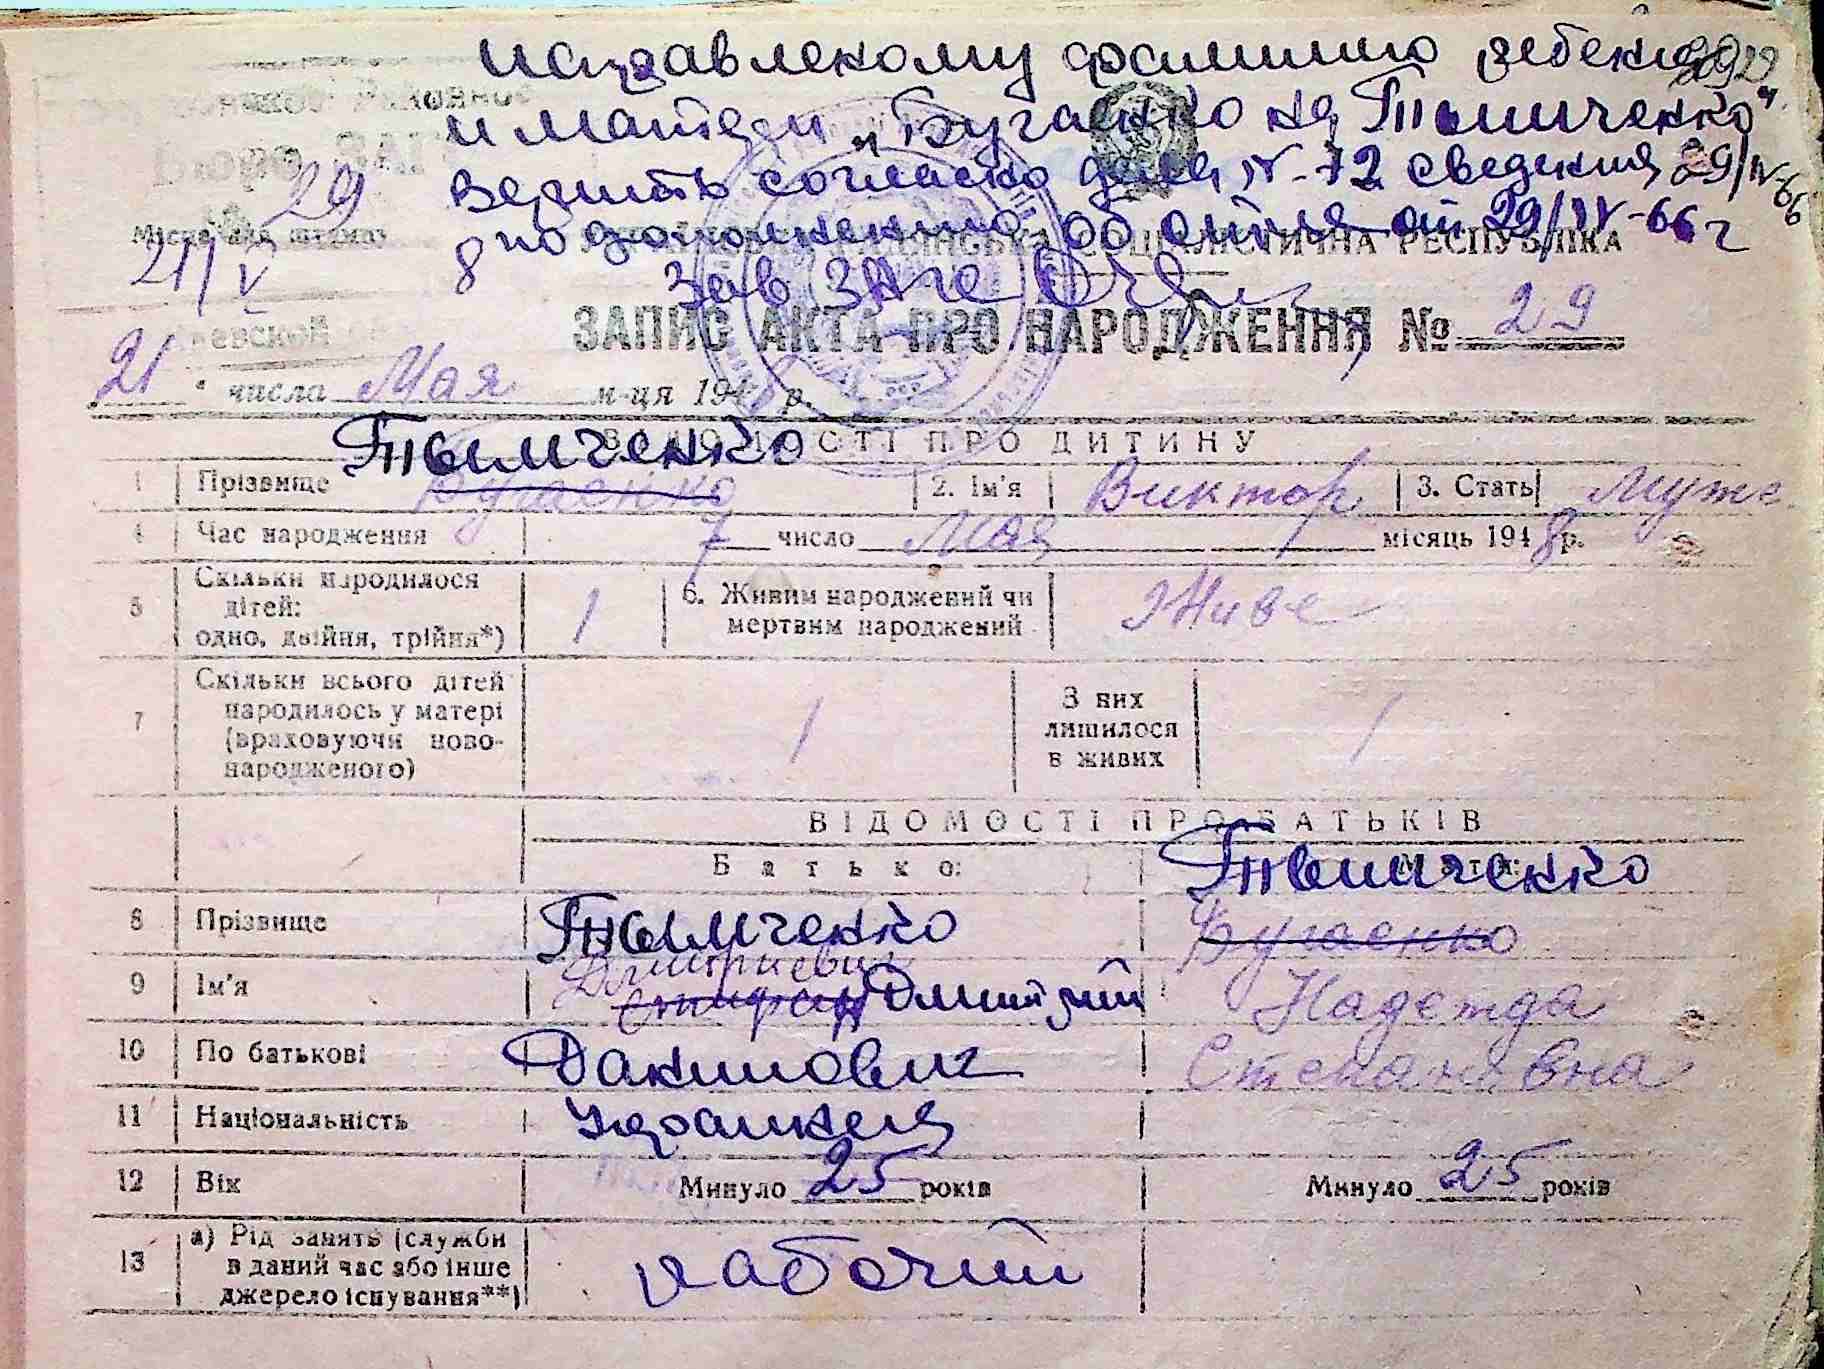 исправленому фамилию ребенка
и матери „Бугаенко на Тымченко"
верить согласно дела N-72 сведения 29/IV-66
по дополнению об отце от 29/IV-66 г
29
21/V 8
Зав ЗАГС
Місце для штампа
СОЦІАЛІСТИЧНА РЕСПУБЛІКА
ЗАПИС АКТА ПРО НАРОДЖЕННЯ № 29
21 числа Мая м-ця 194 р.
ВІДОМОСТІ ПРО ДИТИНУ
Тымченко
1 Прізвище Бугаенко 2. Ім'я Виктор 3. Стать Муже
4 Час народження 7 число Мая місяць 1948 р.
5 Скільки народилося дітей: одно, двійня, трійня*) 1 6. Живим народжений чи мертвим народжений Живе
7 Скільки всього дітей народилось у матері (враховуючи новонародженого) 1 З них лишилося в живих 1
ВІДОМОСТІ ПРО БАТЬКІВ
Батько: Мати:
Тымченко
8 Прізвище Тымченко Бугаенко
Дмитриевич
9 Ім'я Дмитрий Надежда
10 По батькові Данилович Степановна
11 Національність Украинец
12 Вік Минуло 25 років Минуло 25 років
13 а) Рід занять (служби в даний час або інше джерело існування**) рабочий